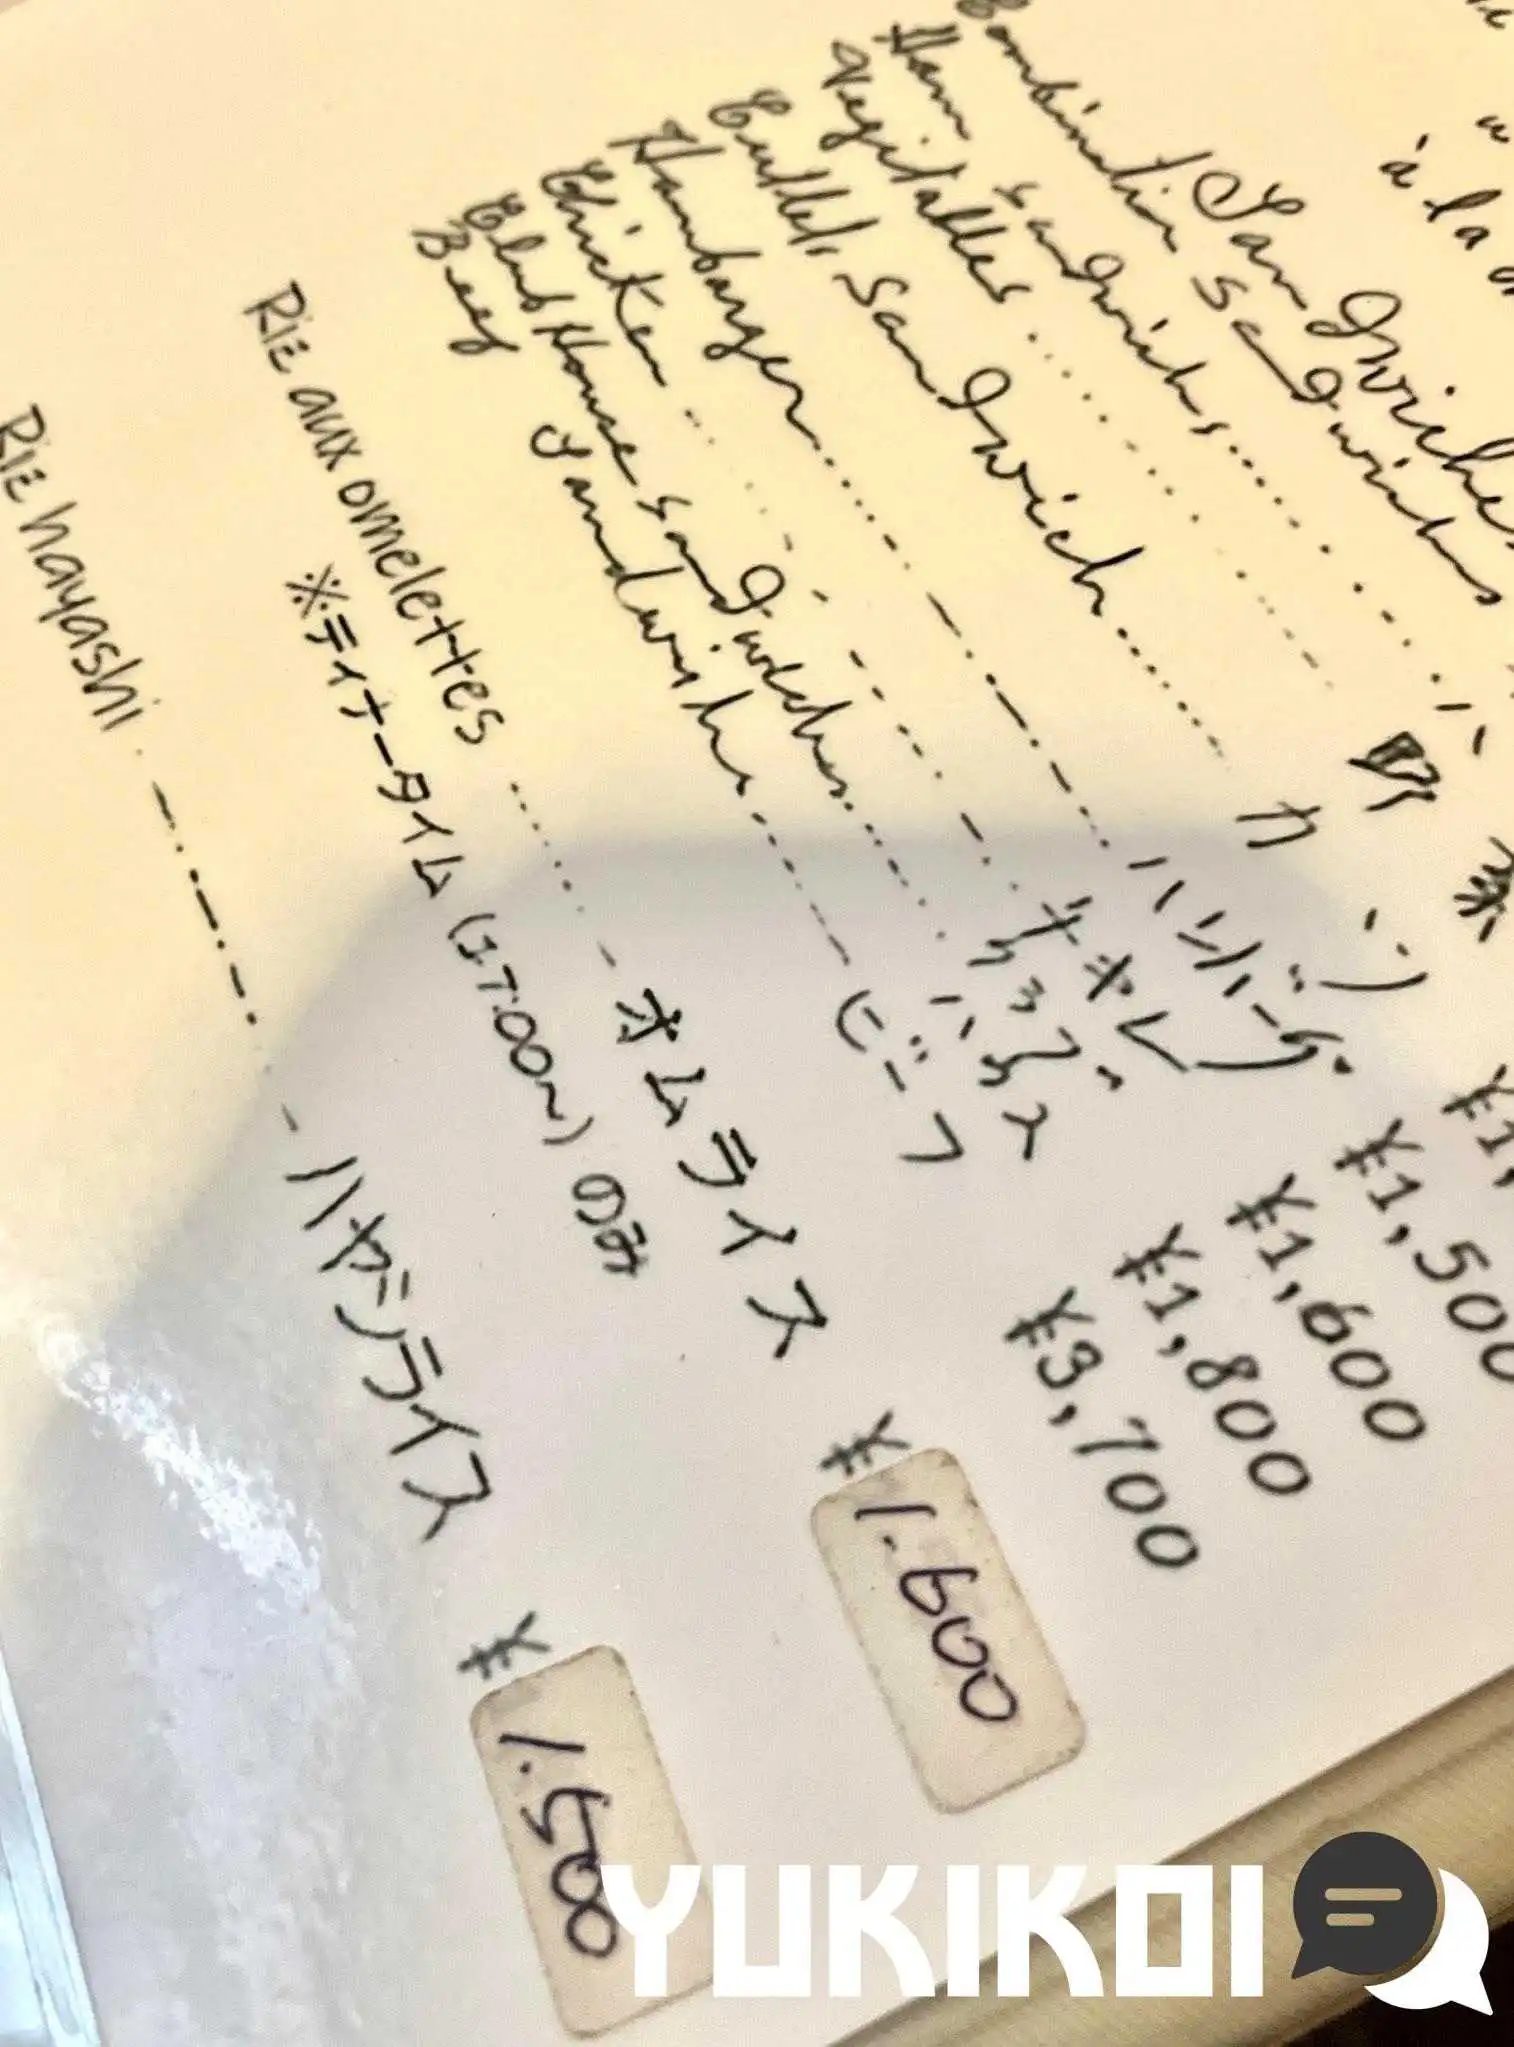 à la
Sandwiches
Combination Sandwichs
Ham Sandwichs
Vegitables 野菜
Cutlet Sandwich カツ
Hambarger ハンバーグ ¥1,500
Chicken チキン ¥1,600
Club House Sandwichs クラブハウス ¥1,800
Beef Sandwichs ビーフ ¥3,700
Riz aux omelettes オムライス ¥1.600
※ディナータイム (17:00~) のみ
Riz hayashi ハヤシライス ¥1.500
YUKIKOI